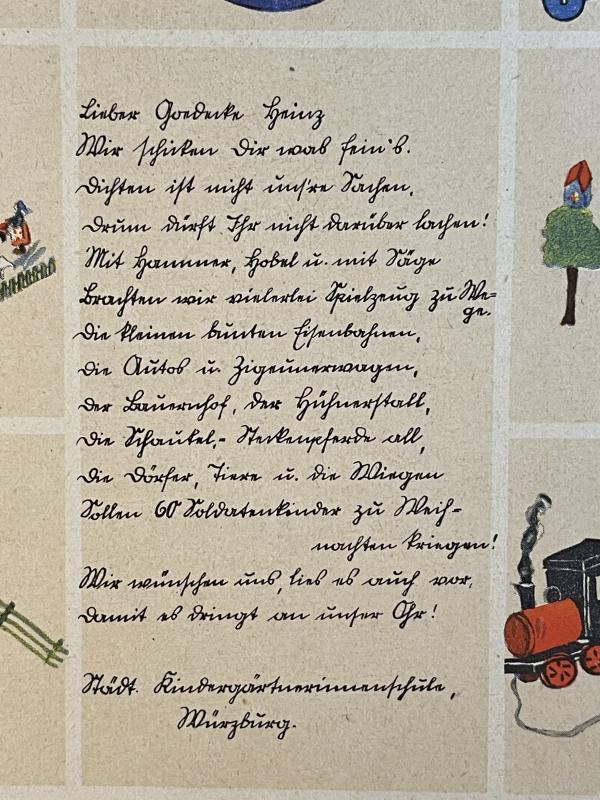 Lieber Goedecke Heinz
Wir schicken Dir was fein's.
Dichten ist nicht uns're Sachen,
Drum dürft Ihr nicht darüber lachen!
Mit Hammer, Hobel u. mit Säge
Brachten wir vielerlei Spielzeug zu We=
ge.
Die kleinen bunten Eisenbahnen,
Die Autos u. Zigeunerwagen,
Der Bauernhof, der Hühnerstall,
Die Schaukel,- Steckenpferde all,
Die Dörfer, Tiere u. die Wiegen
Sollen 60 Soldatenkinder zu Weih-
nachten kriegen!
Wir wünschen uns, lies es auch vor,
Damit es dringt an unser Ohr!
Städt. Kindergärtnerinnenschule,
Würzburg.